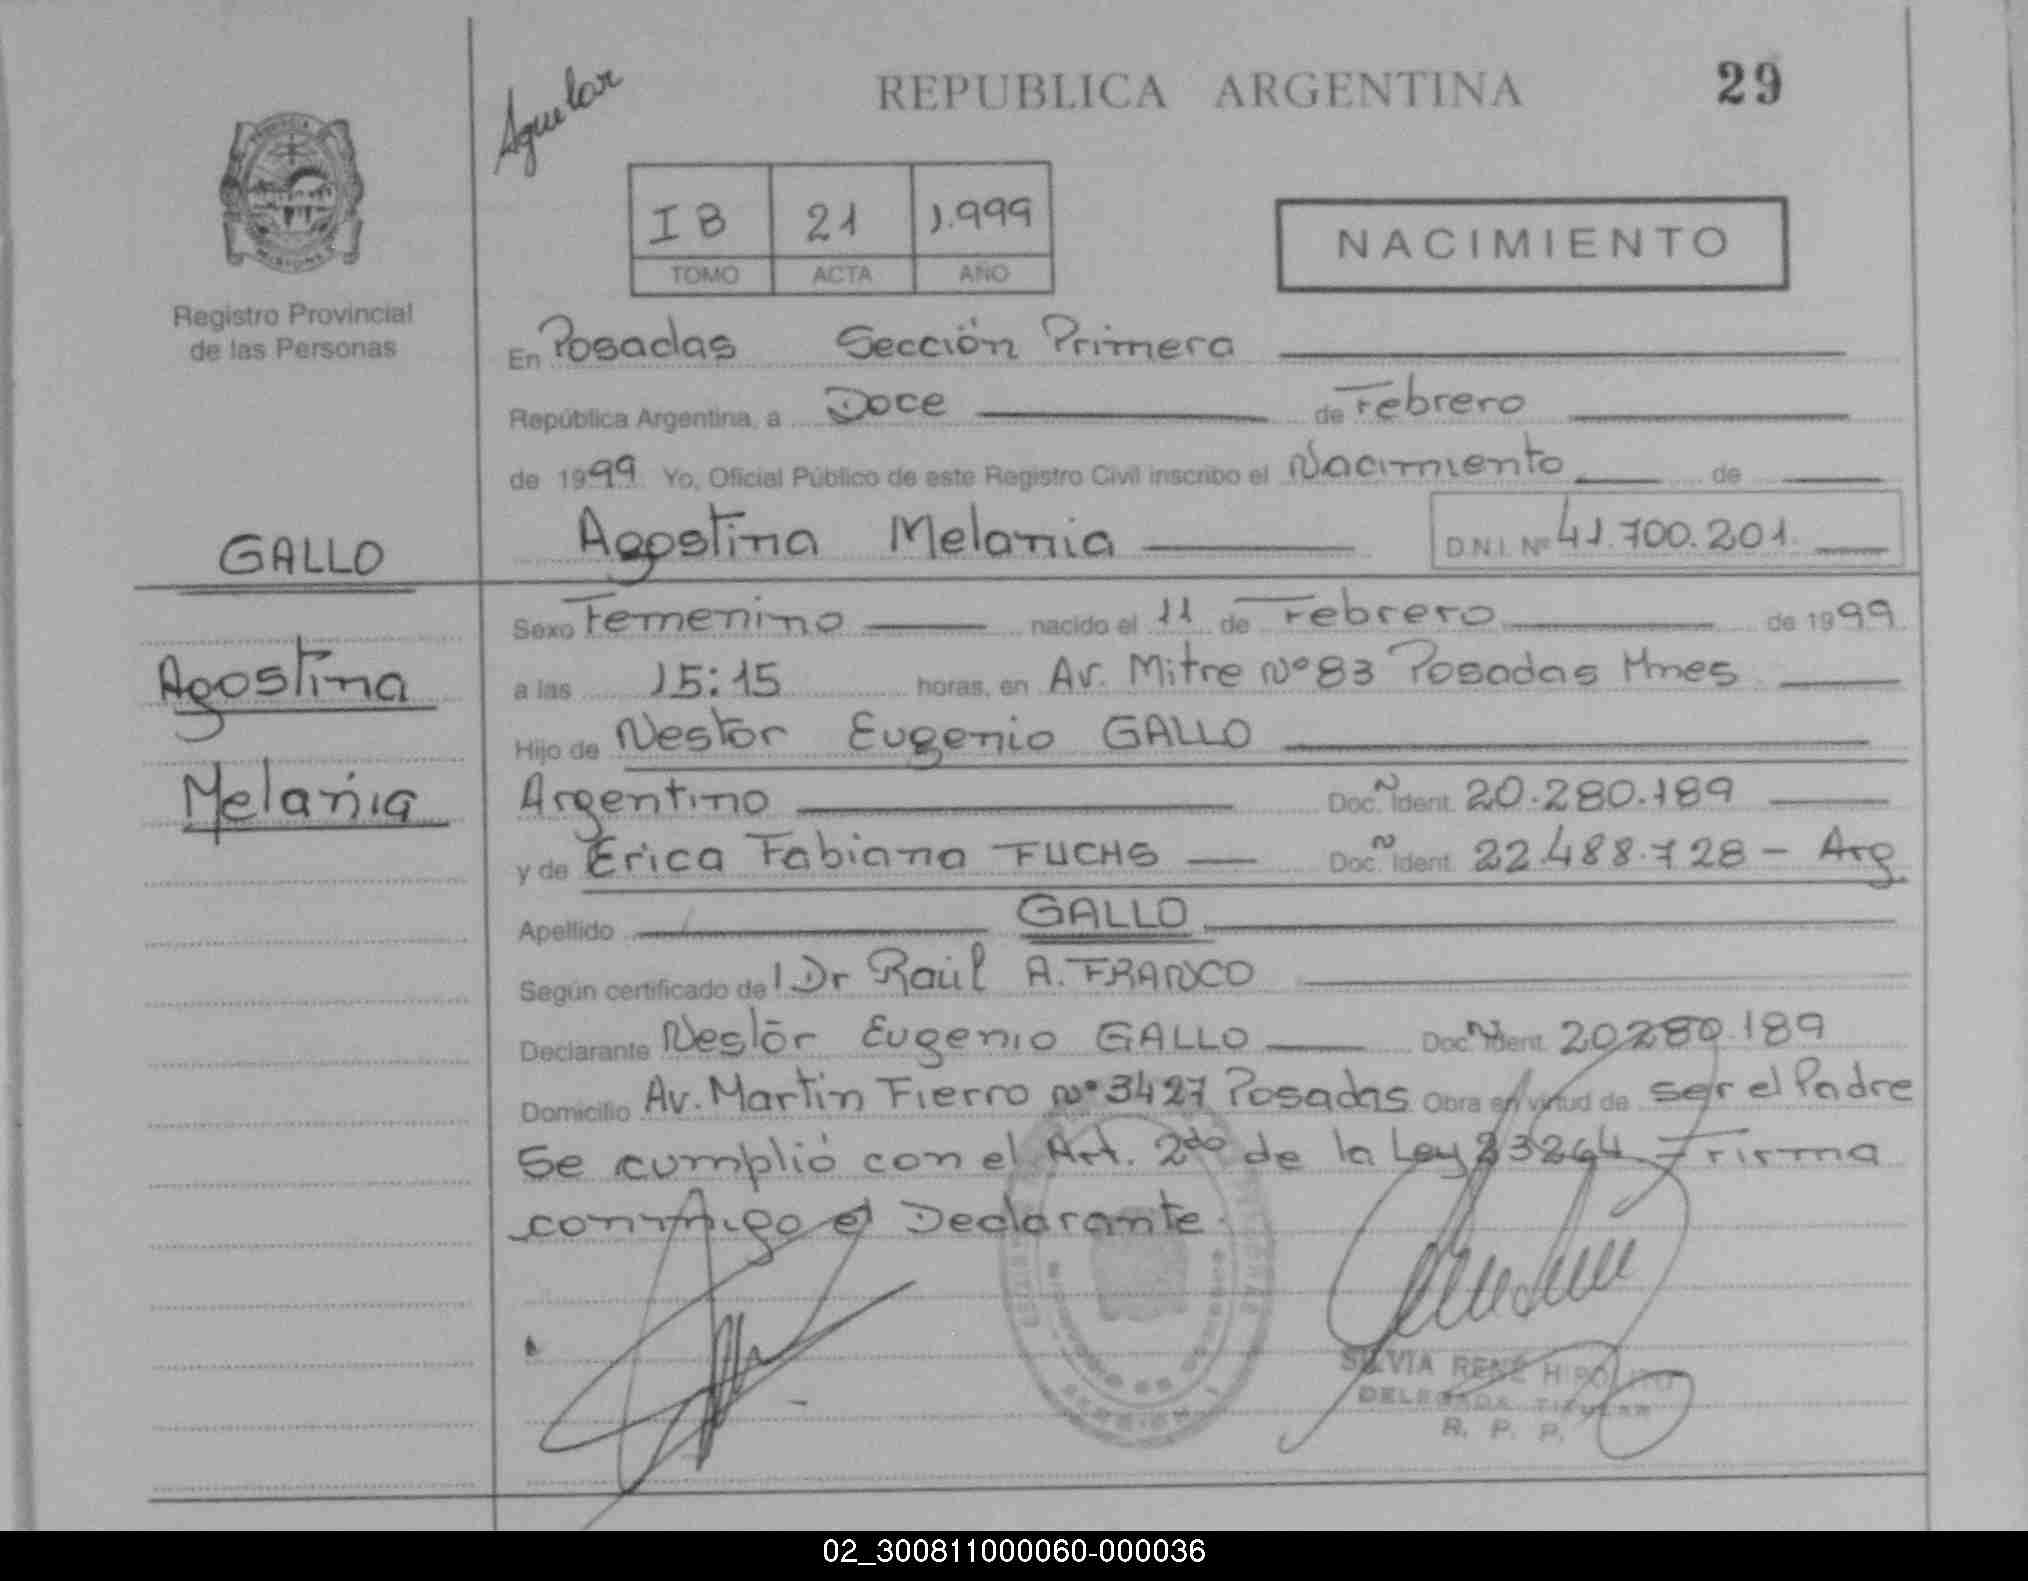 Aguilar
REPUBLICA ARGENTINA
29
I B 21 1.999
TOMO ACTA AÑO
NACIMIENTO
Registro Provincial
de las Personas
En Posadas Sección Primera
República Argentina, a Doce de Febrero
de 1999 Yo, Oficial Público de este Registro Civil inscribo el Nacimiento de
Agostina Melania D.N.I. Nº 41.700.201.
GALLO
Agostina
Melania
Sexo Femenino nacido el 11 de Febrero de 1999
a las 15:15 horas, en Av. Mitre Nº 83 Posadas Mnes
Hijo de Nestor Eugenio GALLO
Argentino Doc. Ident. 20.280.189
y de Erica Fabiana FUCHS Doc. Ident. 22.488.728 - Arg
Apellido GALLO
Según certificado del Dr Raúl A. FRANCO
Declarante Nestor Eugenio GALLO Doc. Ident. 20280.189
Domicilio Av. Martin Fierro Nº 3427 Posadas Obra en virtud de ser el Padre
Se cumplió con el Art. 2do de la Ley 23264 Firma
conmigo el Declarante.
SILVIA RENE HIPOLITO
DELEGADA TITULAR
R. P. P.
02_300811000060-000036